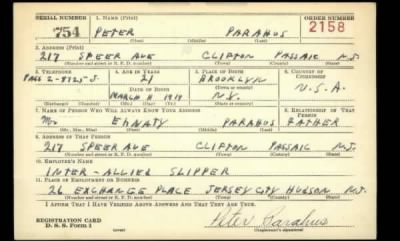 SERIAL NUMBER 1. NAME (Print) ORDER NUMBER
754 PETER PARAHUS 2158
2. ADDRESS (Print)
217 SPEER AVE CLIFTON PASSAIC N.J.
(Number and street or R. F. D. number) (Town) (County) (State)
3. TELEPHONE 4. AGE IN YEARS 5. PLACE OF BIRTH 6. COUNTRY OF CITIZENSHIP
PASS 2-8725-J 21 BROOKLYN
DATE OF BIRTH U.S.A.
MARCH 11 1919 N.Y.
(Exchange) (Number) (Mo.) (Day) (Yr.) (State or country)
7. NAME OF PERSON WHO WILL ALWAYS KNOW YOUR ADDRESS 8. RELATIONSHIP OF THAT PERSON
PARAHUS FATHER
(Mr., Mrs., Miss) (First) (Middle) (Last)
9. ADDRESS OF THAT PERSON
217 SPEER AVE CLIFTON PASSAIC N.J.
(Number and street or R. F. D. number) (Town) (County) (State)
10. EMPLOYER'S NAME
INTER-ALLIED SLIPPER
11. PLACE OF EMPLOYMENT OR BUSINESS
26 EXCHANGE PLACE JERSEY CITY HUDSON N.J.
(Number and street or R. F. D. number) (Town) (County) (State)
I AFFIRM THAT I HAVE VERIFIED ABOVE ANSWERS AND THAT THEY ARE TRUE.
REGISTRATION CARD
D. S. S. Form 1 Peter Parahus
(Registrant's signature)